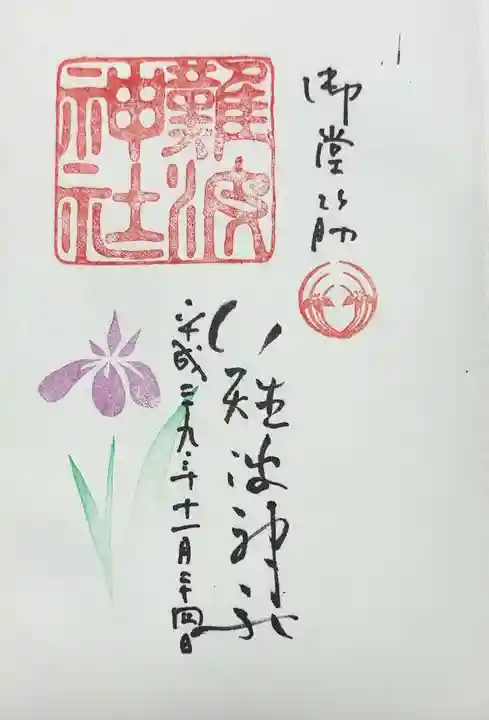 御堂筋
難波神社
平成二九年十一月二十四日
難波
神社